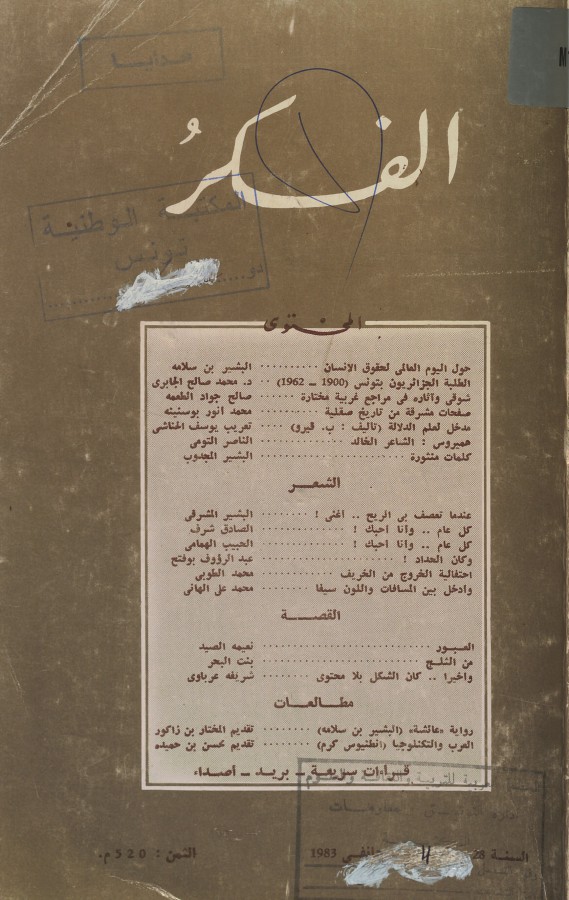 هدايا
الفكرُ
المكتبة الوطنية
تونس
المحتوى
حول اليوم العالمي لحقوق الانسان .......... البشير بن سلامه
الطلبة الجزائريون بتونس (1900 ــ 1962) .. د. محمد صالح الجابرى
شوقى وآثاره فى مراجع غربية مختارة ...... صالح جواد الطعمه
صفحات مشرقة من تاريخ صقلية .......... محمد أنور بوسنينه
مدخل لعلم الدلالة (تاليف : ب. قيرو) .. تعريب يوسف الحناشى
هميروس : الشاعر الخالد .......... الناصر التومى
كلمات منثورة .......... البشير المجدوب
الشعر
عندما تعصف بى الريح .. أغنى ! ........ البشير المشرقى
كل عام .. وأنا أحبك ! .......... الصادق شرف
كل عام .. وأنا أحبك ! .......... الحبيب الهمامى
وكان الحداد ! .......... عبد الرؤوف بوفتح
احتفالية الخروج من الخريف .......... محمد الطوبى
وأدخل بين المسافات واللون سيفا ........ محمد على الهانى
القصة
العبور .......... نعيمه الصيد
من الثلج .......... بنت البحر
وأخيرا .. كان الشكل بلا محتوى ........ شريفه عرباوى
مطالعات
رواية «عائشة» (البشير بن سلامه) ........ تقديم المختار بن زاكور
العرب والتكنلوجيا (أنطنيوس كرم) ...... تقديم محسن بن حميده
قراءات سريعة ــ بريد ــ أصداء
السنة 28 جانفى 1983
الثمن : 520 م.